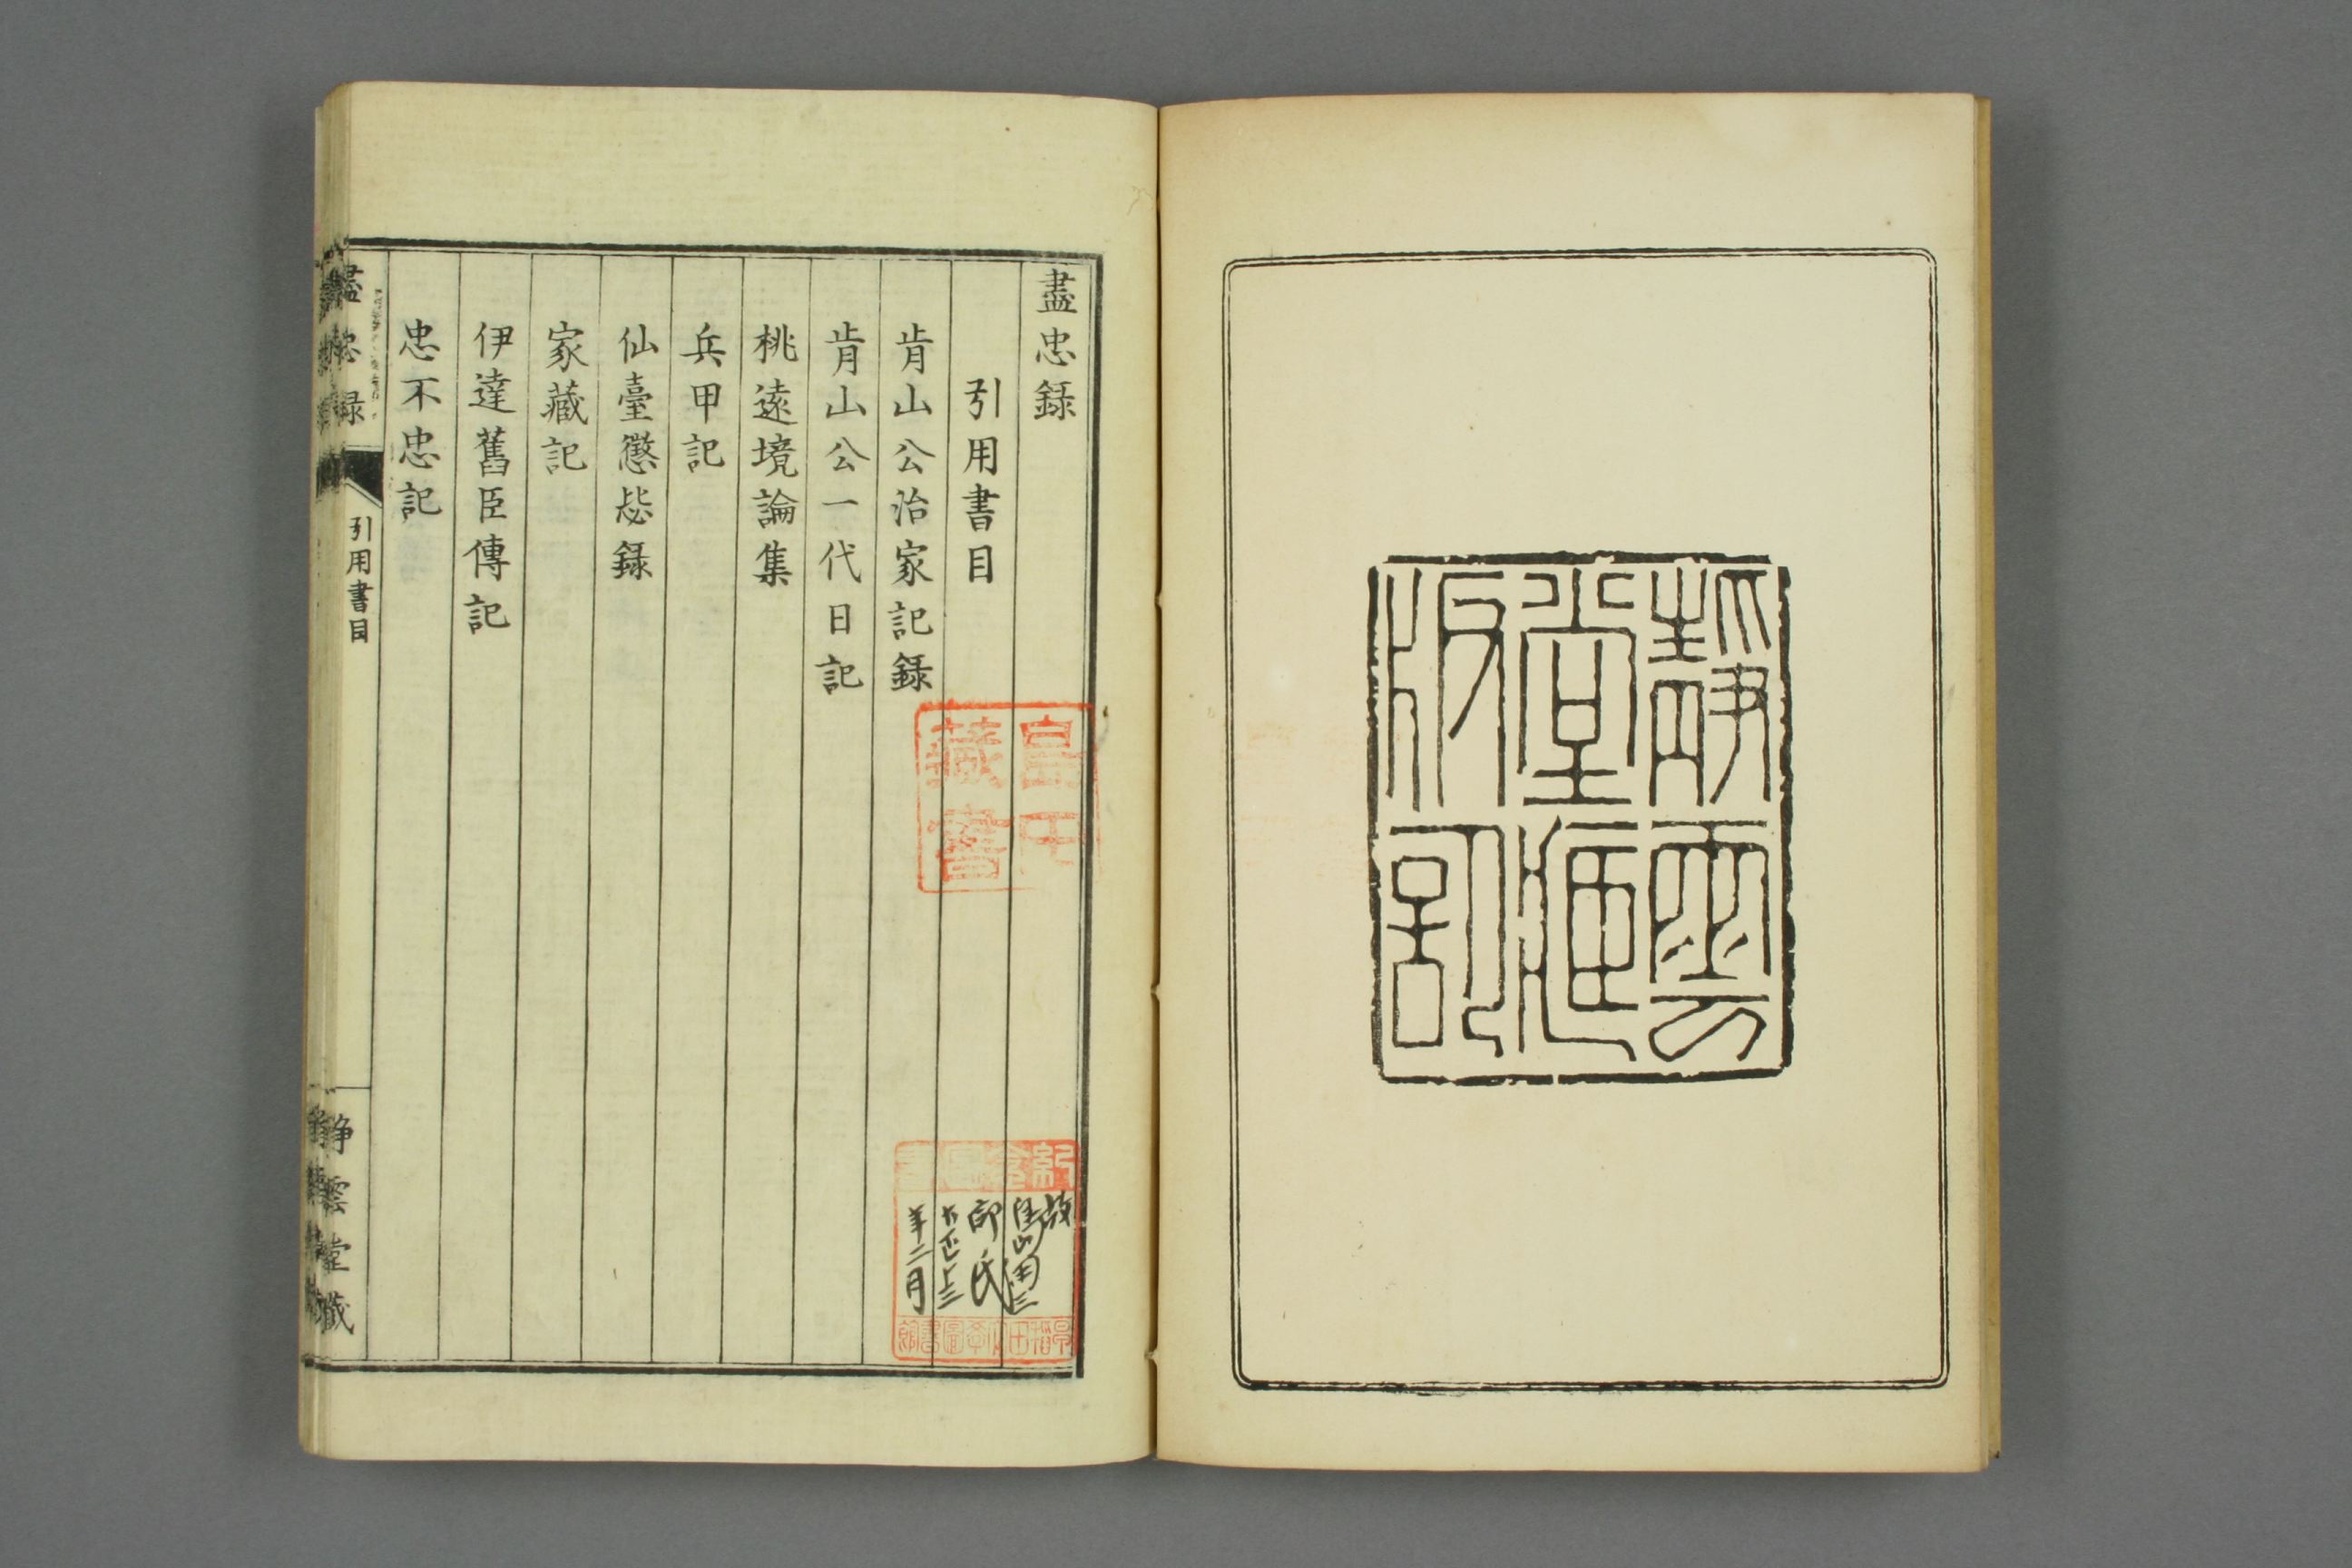 靜雲
堂葴
版記
盡忠錄
引用書目
肯山公治家記錄
肯山公一代日記
桃遠境論集
兵甲記
仙臺懲毖錄
家藏記
伊達舊臣傳記
忠不忠記
島氏
藏書
故
田三
郎氏
大正十三
年二月
早稻田大學圖書館
盡忠錄
引用書目
靜雲堂藏